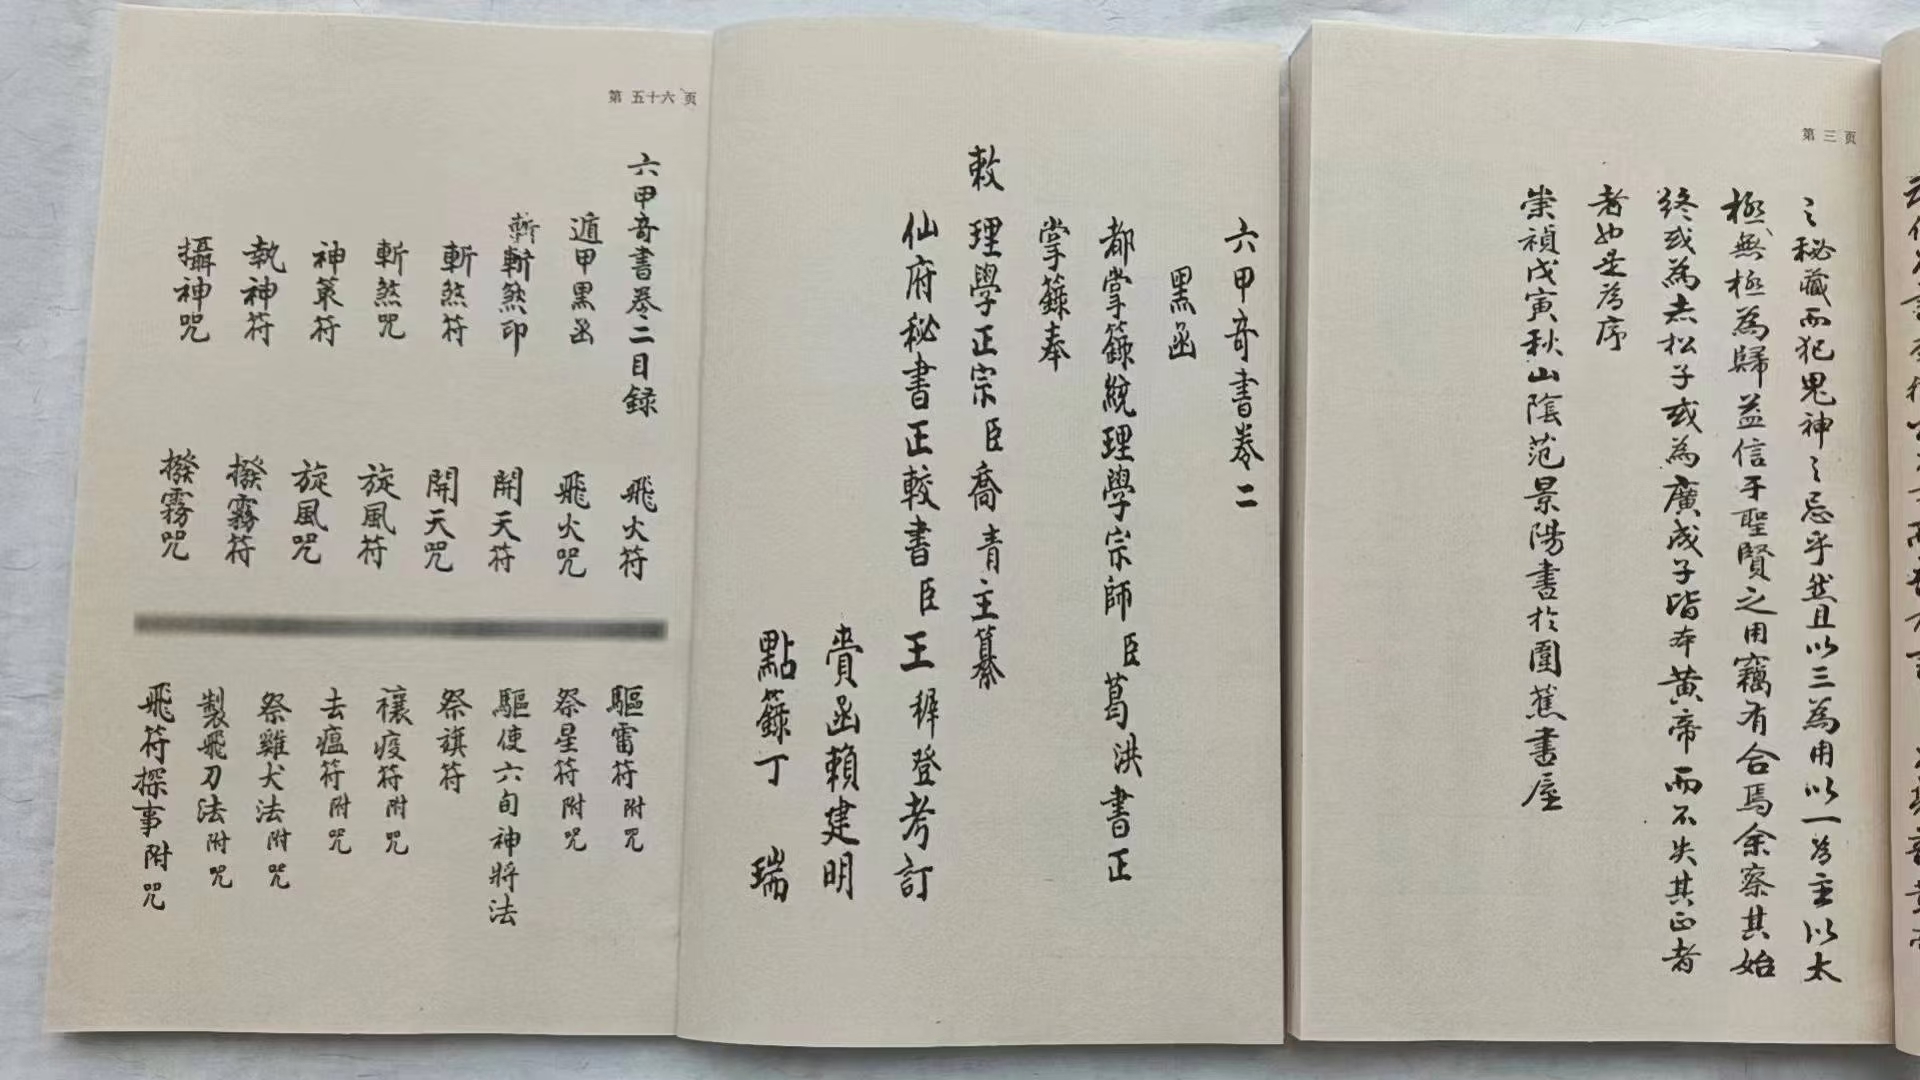 第三页
之秘藏而犯鬼神之忌乎然且以三為用以一為主以太
極無極為歸益信乎聖賢之用竊有合焉余察其始
終或為赤松子或為廣成子皆本黃帝而不失其正者
者也是為序
崇禎戊寅秋山陰范景陽書於圍蕉書屋
六甲奇書卷二
黑函
都掌籙統理學宗師臣葛洪書正
掌籙奉
敕理學正宗臣喬青主纂
仙府秘書正較書臣王穉登考訂
賫函賴建明
點籙丁瑞
第五十六页
六甲奇書卷二目録
遁甲黑函
斬斬煞印
斬煞符
斬煞咒
神策符
執神符
攝神咒
飛火符
飛火咒
開天符
開天咒
旋風符
旋風咒
撥霧符
撥霧咒
驅雷符附咒
祭星符附咒
驅使六旬神將法
祭旗符
禳疫符附咒
去瘟符附咒
祭雞犬法附咒
製飛刀法附咒
飛符探事附咒